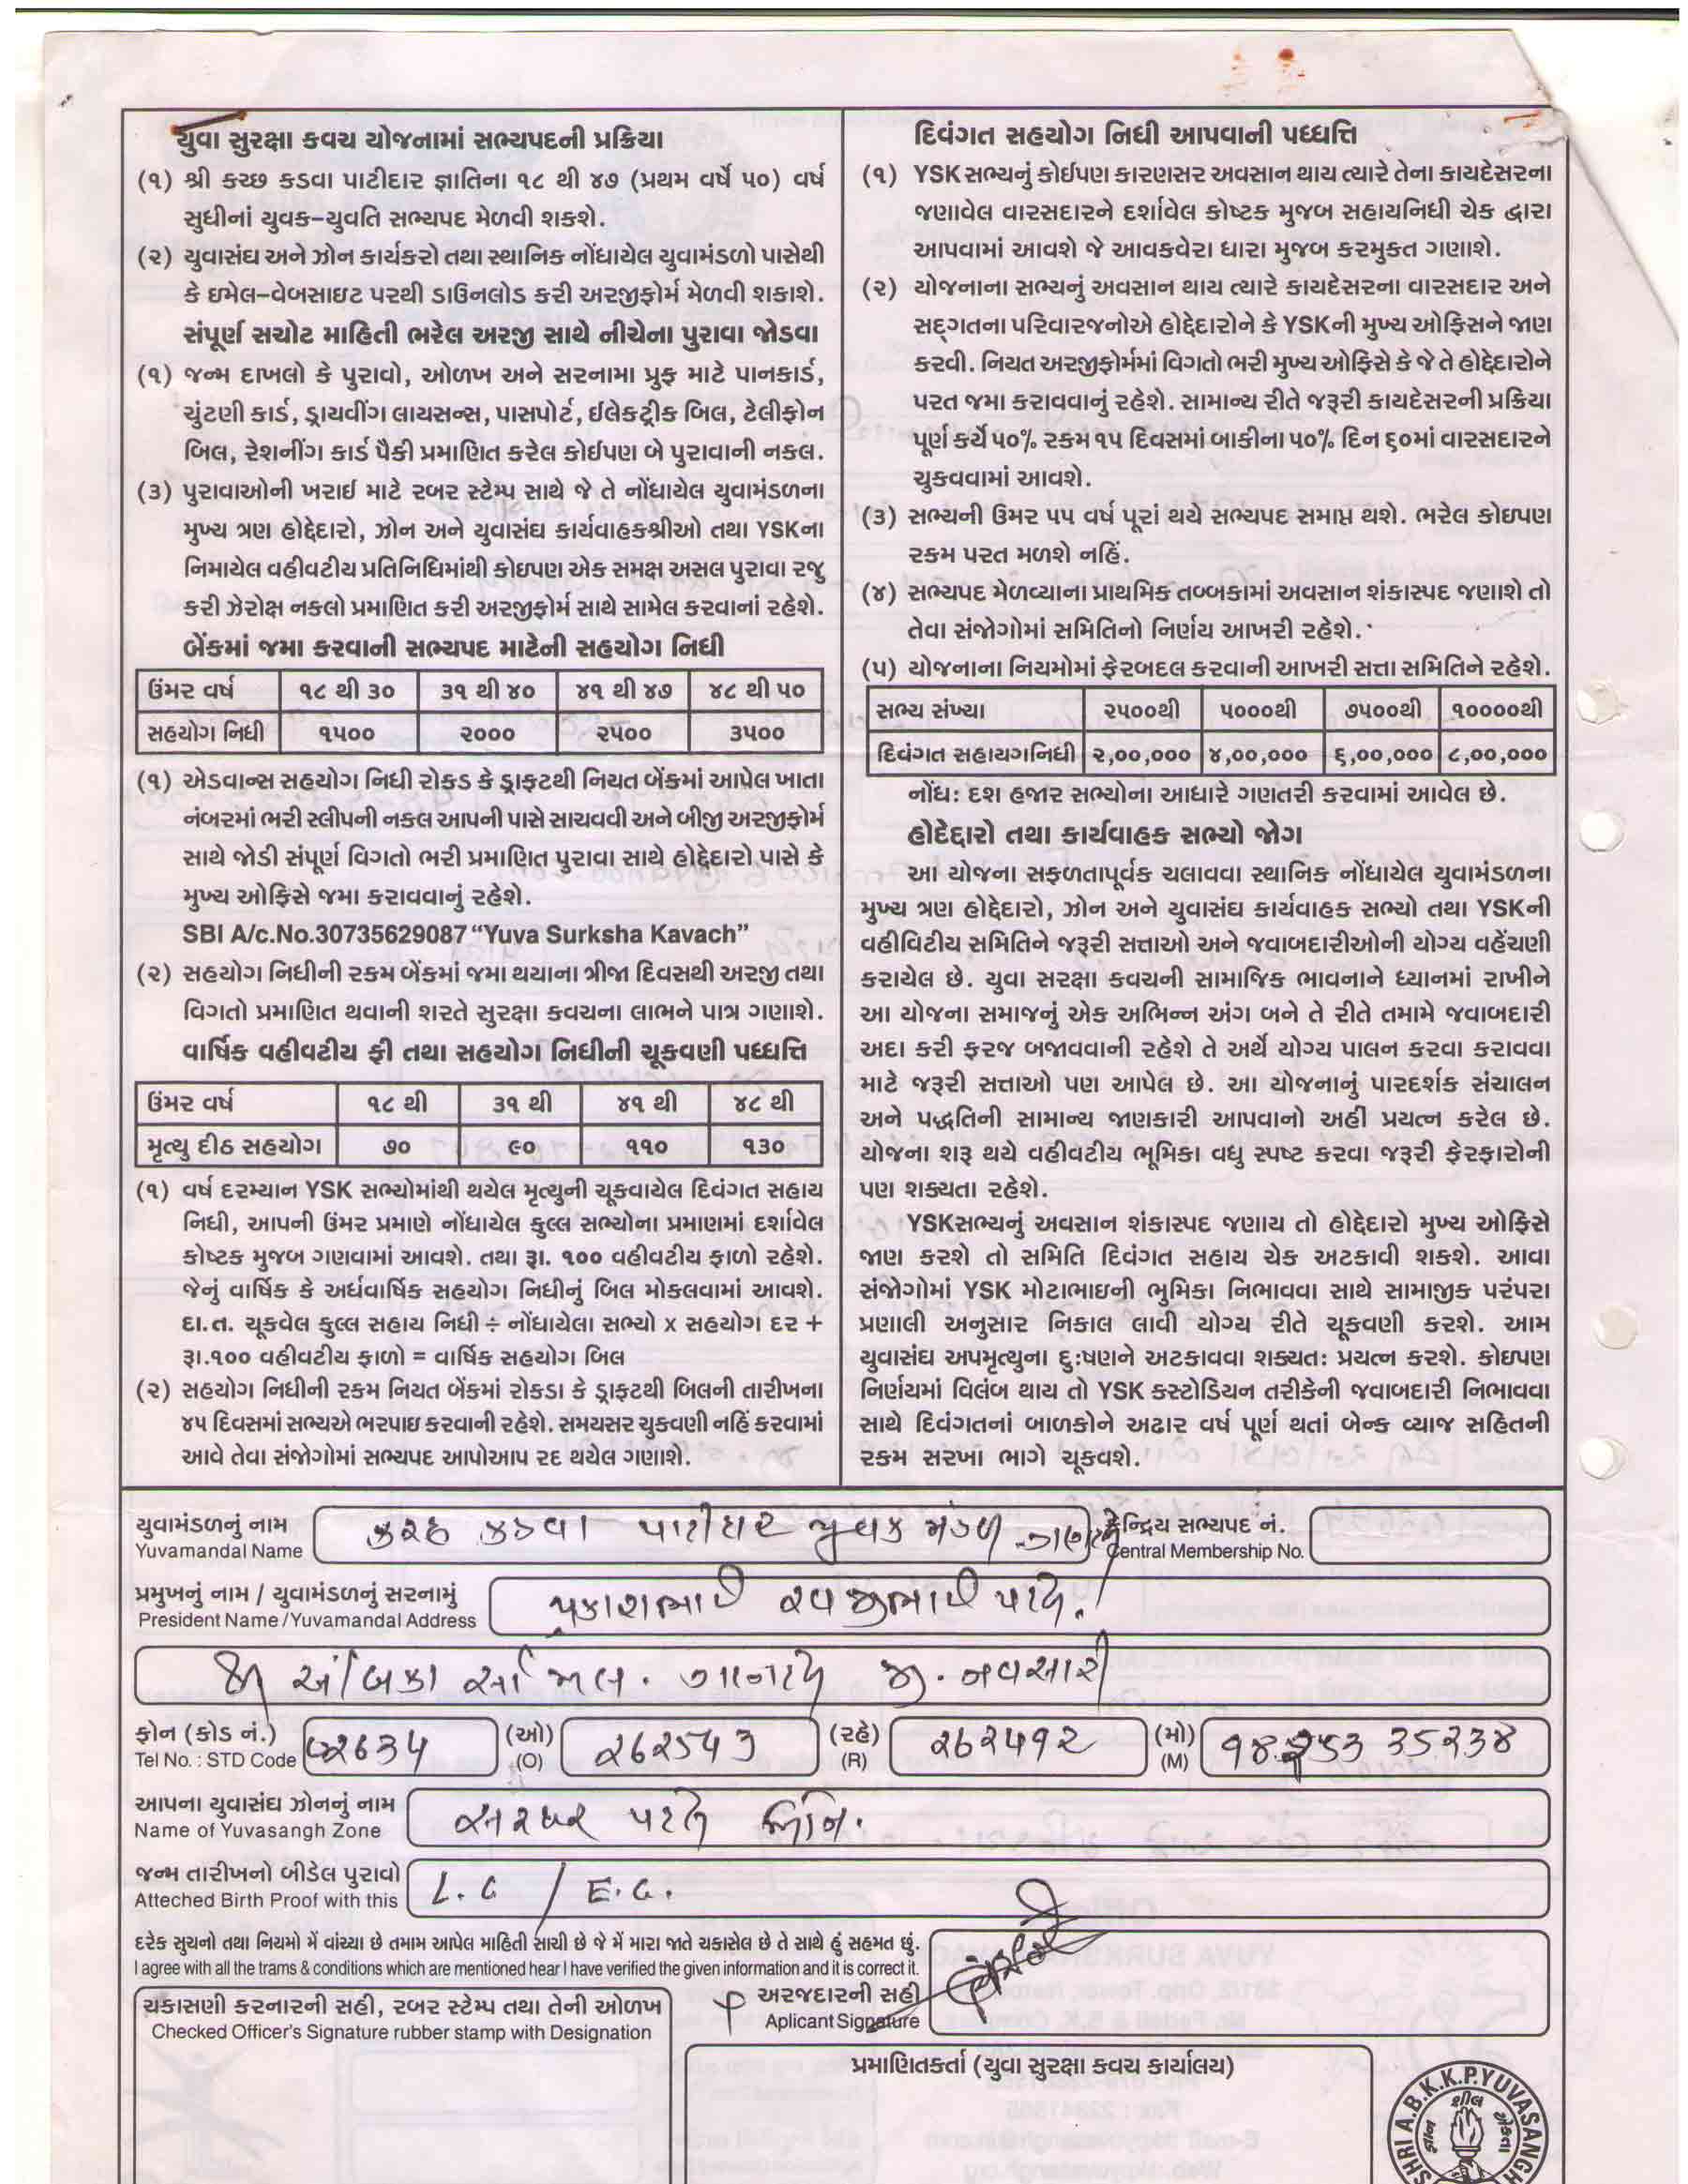 યુવા સુરક્ષા કવચ યોજનામાં સભ્યપદની પ્રક્રિયા
(૧) શ્રી કચ્છ કડવા પાટીદાર જ્ઞાતિના ૧૮ થી ૪૭ (પ્રથમ વર્ષે ૫૦) વર્ષ
સુધીનાં યુવક-યુવતિ સભ્યપદ મેળવી શકશે.
(૨) યુવાસંઘ અને ઝોન કાર્યકરો તથા સ્થાનિક નોંધાયેલ યુવામંડળો પાસેથી
કે ઇમેલ-વેબસાઇટ પરથી ડાઉનલોડ કરી અરજીફોર્મ મેળવી શકાશે.
સંપૂર્ણ સચોટ માહિતી ભરેલ અરજી સાથે નીચેના પુરાવા જોડવા
(૧) જન્મ દાખલો કે પુરાવો, ઓળખ અને સરનામા પ્રુફ માટે પાનકાર્ડ,
ચુંટણી કાર્ડ, ડ્રાયવીંગ લાયસન્સ, પાસપોર્ટ, ઈલેકટ્રીક બિલ, ટેલીફોન
બિલ, રેશનીંગ કાર્ડ પૈકી પ્રમાણિત કરેલ કોઈપણ બે પુરાવાની નકલ.
(૩) પુરાવાઓની ખરાઈ માટે રબર સ્ટેમ્પ સાથે જે તે નોંધાયેલ યુવામંડળના
મુખ્ય ત્રણ હોદ્દેદારો, ઝોન અને યુવાસંઘ કાર્યવાહકશ્રીઓ તથા YSKના
નિમાયેલ વહીવટીય પ્રતિનિધિમાંથી કોઇપણ એક સમક્ષ અસલ પુરાવા રજુ
કરી ઝેરોક્ષ નકલો પ્રમાણિત કરી અરજીફોર્મ સાથે સામેલ કરવાનાં રહેશે.
બેંકમાં જમા કરવાની સભ્યપદ માટેની સહયોગ નિધી
ઉંમર વર્ષ ૧૮ થી ૩૦ ૩૧ થી ૪૦ ૪૧ થી ૪૭ ૪૮ થી ૫૦
સહયોગ નિધી ૧૫૦૦ ૨૦૦૦ ૨૫૦૦ ૩૫૦૦
(૧) એડવાન્સ સહયોગ નિધી રોકડ કે ડ્રાફટથી નિયત બેંકમાં આપેલ ખાતા
નંબરમાં ભરી સ્લીપની નકલ આપની પાસે સાચવવી અને બીજી અરજીફોર્મ
સાથે જોડી સંપૂર્ણ વિગતો ભરી પ્રમાણિત પુરાવા સાથે હોદ્દેદારો પાસે કે
મુખ્ય ઓફિસે જમા કરાવવાનું રહેશે.
SBI A/c.No.30735629087 "Yuva Surksha Kavach"
(૨) સહયોગ નિધીની રકમ બેંકમાં જમા થયાના ત્રીજા દિવસથી અરજી તથા
વિગતો પ્રમાણિત થવાની શરતે સુરક્ષા કવચના લાભને પાત્ર ગણાશે.
વાર્ષિક વહીવટીય ફી તથા સહયોગ નિધીની ચૂકવણી પધ્ધતિ
ઉંમર વર્ષ ૧૮ થી ૩૧ થી ૪૧ થી ૪૮ થી
મૃત્યુ દીઠ સહયોગ ૭૦ ૯૦ ૧૧૦ ૧૩૦
(૧) વર્ષ દરમ્યાન YSK સભ્યોમાંથી થયેલ મૃત્યુની ચૂકવાયેલ દિવંગત સહાય
નિધી, આપની ઉંમર પ્રમાણે નોંધાયેલ કુલ્લ સભ્યોના પ્રમાણમાં દર્શાવેલ
કોષ્ટક મુજબ ગણવામાં આવશે. તથા રૂા. ૧૦૦ વહીવટીય ફાળો રહેશે.
જેનું વાર્ષિક કે અર્ધવાર્ષિક સહયોગ નિધીનું બિલ મોકલવામાં આવશે.
દા.ત. ચૂકવેલ કુલ્લ સહાય નિધી ÷ નોંધાયેલા સભ્યો x સહયોગ દર +
રૂા.૧૦૦ વહીવટીય ફાળો = વાર્ષિક સહયોગ બિલ
(૨) સહયોગ નિધીની રકમ નિયત બેંકમાં રોકડા કે ડ્રાફટથી બિલની તારીખના
૪૫ દિવસમાં સભ્યએ ભરપાઇ કરવાની રહેશે. સમયસર ચુકવણી નહિં કરવામાં
આવે તેવા સંજોગોમાં સભ્યપદ આપોઆપ રદ થયેલ ગણાશે.
દિવંગત સહયોગ નિધી આપવાની પધ્ધતિ
(૧) YSK સભ્યનું કોઈપણ કારણસર અવસાન થાય ત્યારે તેના કાયદેસરના
જણાવેલ વારસદારને દર્શાવેલ કોષ્ટક મુજબ સહાયનિધી ચેક દ્વારા
આપવામાં આવશે જે આવકવેરા ધારા મુજબ કરમુકત ગણાશે.
(૨) યોજનાના સભ્યનું અવસાન થાય ત્યારે કાયદેસરના વારસદાર અને
સદ્ગતના પરિવારજનોએ હોદ્દેદારોને કે YSKની મુખ્ય ઓફિસને જાણ
કરવી. નિયત અરજીફોર્મમાં વિગતો ભરી મુખ્ય ઓફિસે કે જે તે હોદ્દેદારોને
પરત જમા કરાવવાનું રહેશે. સામાન્ય રીતે જરૂરી કાયદેસરની પ્રક્રિયા
પૂર્ણ કર્યે ૫૦% રકમ ૧૫ દિવસમાં બાકીના ૫૦% દિન ૬૦માં વારસદારને
ચુકવવામાં આવશે.
(૩) સભ્યની ઉમર ૫૫ વર્ષ પૂરાં થયે સભ્યપદ સમાપ્ત થશે. ભરેલ કોઇપણ
રકમ પરત મળશે નહિં.
(૪) સભ્યપદ મેળવ્યાના પ્રાથમિક તબ્બકામાં અવસાન શંકાસ્પદ જણાશે તો
તેવા સંજોગોમાં સમિતિનો નિર્ણય આખરી રહેશે.
(૫) યોજનાના નિયમોમાં ફેરબદલ કરવાની આખરી સત્તા સમિતિને રહેશે.
સભ્ય સંખ્યા ૨૫૦૦થી ૫૦૦૦થી ૭૫૦૦થી ૧૦૦૦૦થી
દિવંગત સહાયગનિધી ૨,૦૦,૦૦૦ ૪,૦૦,૦૦૦ ૬,૦૦,૦૦૦ ૮,૦૦,૦૦૦
નોંધ: દશ હજાર સભ્યોના આધારે ગણતરી કરવામાં આવેલ છે.
હોદેદ્દારો તથા કાર્યવાહક સભ્યો જોગ
આ યોજના સફળતાપૂર્વક ચલાવવા સ્થાનિક નોંધાયેલ યુવામંડળના
મુખ્ય ત્રણ હોદ્દેદારો, ઝોન અને યુવાસંઘ કાર્યવાહક સભ્યો તથા YSKની
વહીવિટીય સમિતિને જરૂરી સત્તાઓ અને જવાબદારીઓની યોગ્ય વહેંચણી
કરાયેલ છે. યુવા સરક્ષા કવચની સામાજિક ભાવનાને ધ્યાનમાં રાખીને
આ યોજના સમાજનું એક અભિન્ન અંગ બને તે રીતે તમામે જવાબદારી
અદા કરી ફરજ બજાવવાની રહેશે તે અર્થે યોગ્ય પાલન કરવા કરાવવા
માટે જરૂરી સત્તાઓ પણ આપેલ છે. આ યોજનાનું પારદર્શક સંચાલન
અને પદ્ધતિની સામાન્ય જાણકારી આપવાનો અહીં પ્રયત્ન કરેલ છે.
યોજના શરૂ થયે વહીવટીય ભૂમિકા વધુ સ્પષ્ટ કરવા જરૂરી ફેરફારોની
પણ શક્યતા રહેશે.
YSKસભ્યનું અવસાન શંકાસ્પદ જણાય તો હોદ્દેદારો મુખ્ય ઓફિસે
જાણ કરશે તો સમિતિ દિવંગત સહાય ચેક અટકાવી શકશે. આવા
સંજોગોમાં YSK મોટાભાઇની ભુમિકા નિભાવવા સાથે સામાજીક પરંપરા
પ્રણાલી અનુસાર નિકાલ લાવી યોગ્ય રીતે ચૂકવણી કરશે. આમ
યુવાસંઘ અપમૃત્યુના દુ:ષણને અટકાવવા શક્યતઃ પ્રયત્ન કરશે. કોઇપણ
નિર્ણયમાં વિલંબ થાય તો YSK કસ્ટોડિયન તરીકેની જવાબદારી નિભાવવા
સાથે દિવંગતનાં બાળકોને અઢાર વર્ષ પૂર્ણ થતાં બેન્ક વ્યાજ સહિતની
રકમ સરખા ભાગે ચૂકવશે.
યુવામંડળનું નામ કચ્છ કડવા પાટીદાર યુવક મંડળ કેન્દ્રિય સભ્યપદ નં.
Yuvamandal Name Central Membership No.
પ્રમુખનું નામ / યુવામંડળનું સરનામું પ્રકાશભાઈ રવજીભાઈ પટેલ
President Name /Yuvamandal Address
અંબિકા સો મિલ. જી. નવસારી
ફોન (કોડ નં.) ૦૨૬૩૪ (ઓ) ૨૬૨૫૪૩ (રહે) ૨૬૨૫૧૨ (મો)
Tel No. : STD Code (O) (R) (M)
આપના યુવાસંઘ ઝોનનું નામ સરદાર પટેલ
Name of Yuvasangh Zone
જન્મ તારીખનો બીડેલ પુરાવો L.C / E.C.
Atteched Birth Proof with this
દરેક સુચનો તથા નિયમો મેં વાંચ્યા છે તમામ આપેલ માહિતી સાચી છે જે મેં મારા જાતે ચકાસેલ છે તે સાથે હું સહમત છું.
I agree with all the trams & conditions which are mentioned hear I have verified the given information and it is correct it.
અરજદારની સહી
Aplicant Signature
ચકાસણી કરનારની સહી, રબર સ્ટેમ્પ તથા તેની ઓળખ
Checked Officer's Signature rubber stamp with Designation
પ્રમાણિતકર્તા (યુવા સુરક્ષા કવચ કાર્યાલય)
SHRI A.B.K.K.P.YUVASANGH